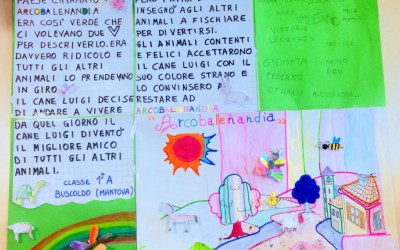 PAESE CHIAMATO
ARCOBALENANDIA
ERA COSI' VERDE CHE
CI VOLEVANO DUE
PER DESCRIVERLO. ERA
DAVVERO RIDICOLO E
TUTTI GLI ALTRI
ANIMALI LO PRENDEVANO
IN GIRO.
IL CANE LUIGI DECISE
DI ANDARE A VIVERE
DA QUEL GIORNO IL
CANE LUIGI DIVENTÒ
IL MIGLIORE AMICO
DI TUTTI GLI ALTRI
ANIMALI.
CLASSE 1ª A
BUSCOLDO (MANTOVA)
INSEGNÒ AGLI ALTRI
ANIMALI A FISCHIARE
PER DIVERTIRSI.
GLI ANIMALI CONTENTI
E FELICI ACCETTARONO
IL CANE LUIGI CON IL
SUO COLORE STRANO E
LO CONVINSERO A
RESTARE AD
ARCOBALENANDIA
"Arcobalenandia"